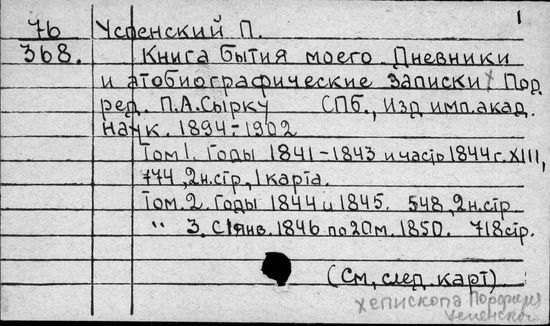 1
76 Успенский П.
368. Книга бытия моего. Дневники
и атобиографические записки Под
ред. П.А.Сырку СПб., Изд. имп. акад.
наук. 1894-1902
Том 1. Годы 1841-1843 и часть 1844 г. XIII,
774, 2н.стр, 1 карта.
Том. 2. Годы 1844 и 1845. 548, 2н.стр.
" 3. С 1 янв. 1846 по 20 м. 1850. 718 стр.
(См, след. карт)
хепископа Порфирия